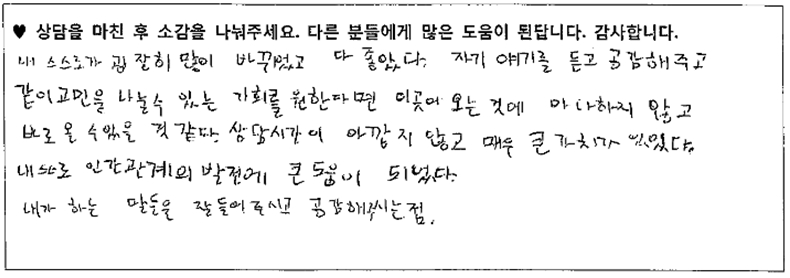 ♥ 상담을 마친 후 소감을 나눠주세요. 다른 분들에게 많은 도움이 된답니다. 감사합니다.
내 스스로가 굉장히 많이 바뀌었고 다 좋았다. 자기 얘기를 듣고 공감해주고
같이 고민을 나눌수 있는 기회를 원한다면 이곳에 오는 것에 마다하지 않고
바로 올 수 있을 것 같다. 상담시간이 아깝지 않고 매우 큰 가치가 있었다.
내 스스로 인간관계의 발전에 큰 도움이 되었다.
내가 하는 말들을 잘 들어주시고 공감해주시는점.